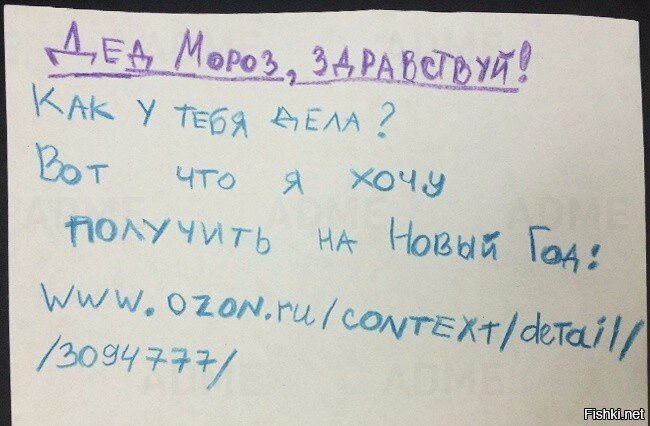 Дед Мороз, здравствуй!
Как у тебя дела?
Вот что я хочу
получить на Новый Год:
www.ozon.ru/context/detail/
/3094777/
ADME
ADME
ADME
ADME
ADME
Fishki.net